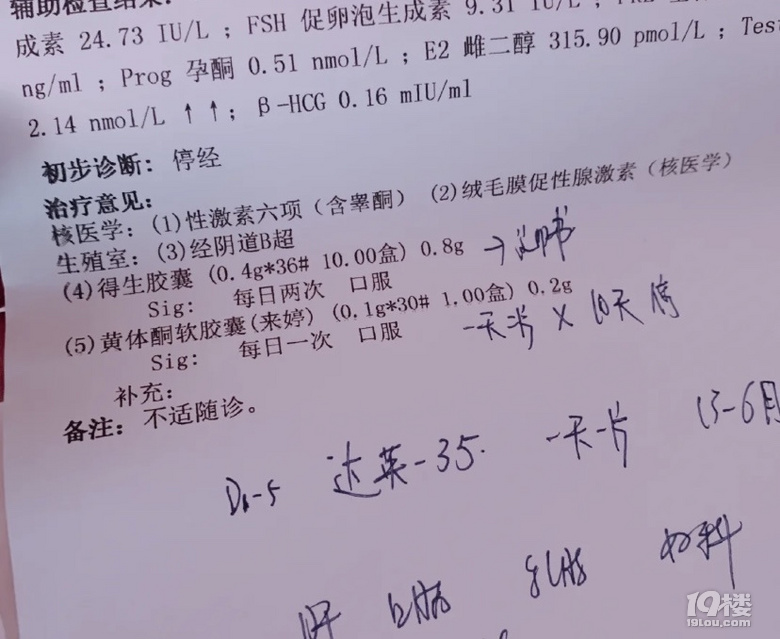 辅助检查结果:
成素 24.73 IU/L ; FSH 促卵泡生成素 9.31 IU/L ;
ng/ml ; Prog 孕酮 0.51 nmol/L ; E2 雌二醇 315.90 pmol/L ; Test
2.14 nmol/L ↑ ↑ ; β-HCG 0.16 mIU/ml
初步诊断: 停经
治疗意见:
核医学: (1)性激素六项(含睾酮) (2)绒毛膜促性腺激素(核医学)
生殖室: (3)经阴道B超
(4)得生胶囊 (0.4g*36# 10.00盒) 0.8g →说明书
Sig: 每日两次 口服
(5)黄体酮软胶囊(来婷) (0.1g*30# 1.00盒) 0.2g
Sig: 每日一次 口服 × 10天 停
补充:
备注: 不适随诊。
D1-5 达英-35. 一天一片 (3-6月
肝 B超 乳腺 妇科
19楼
19lou.com